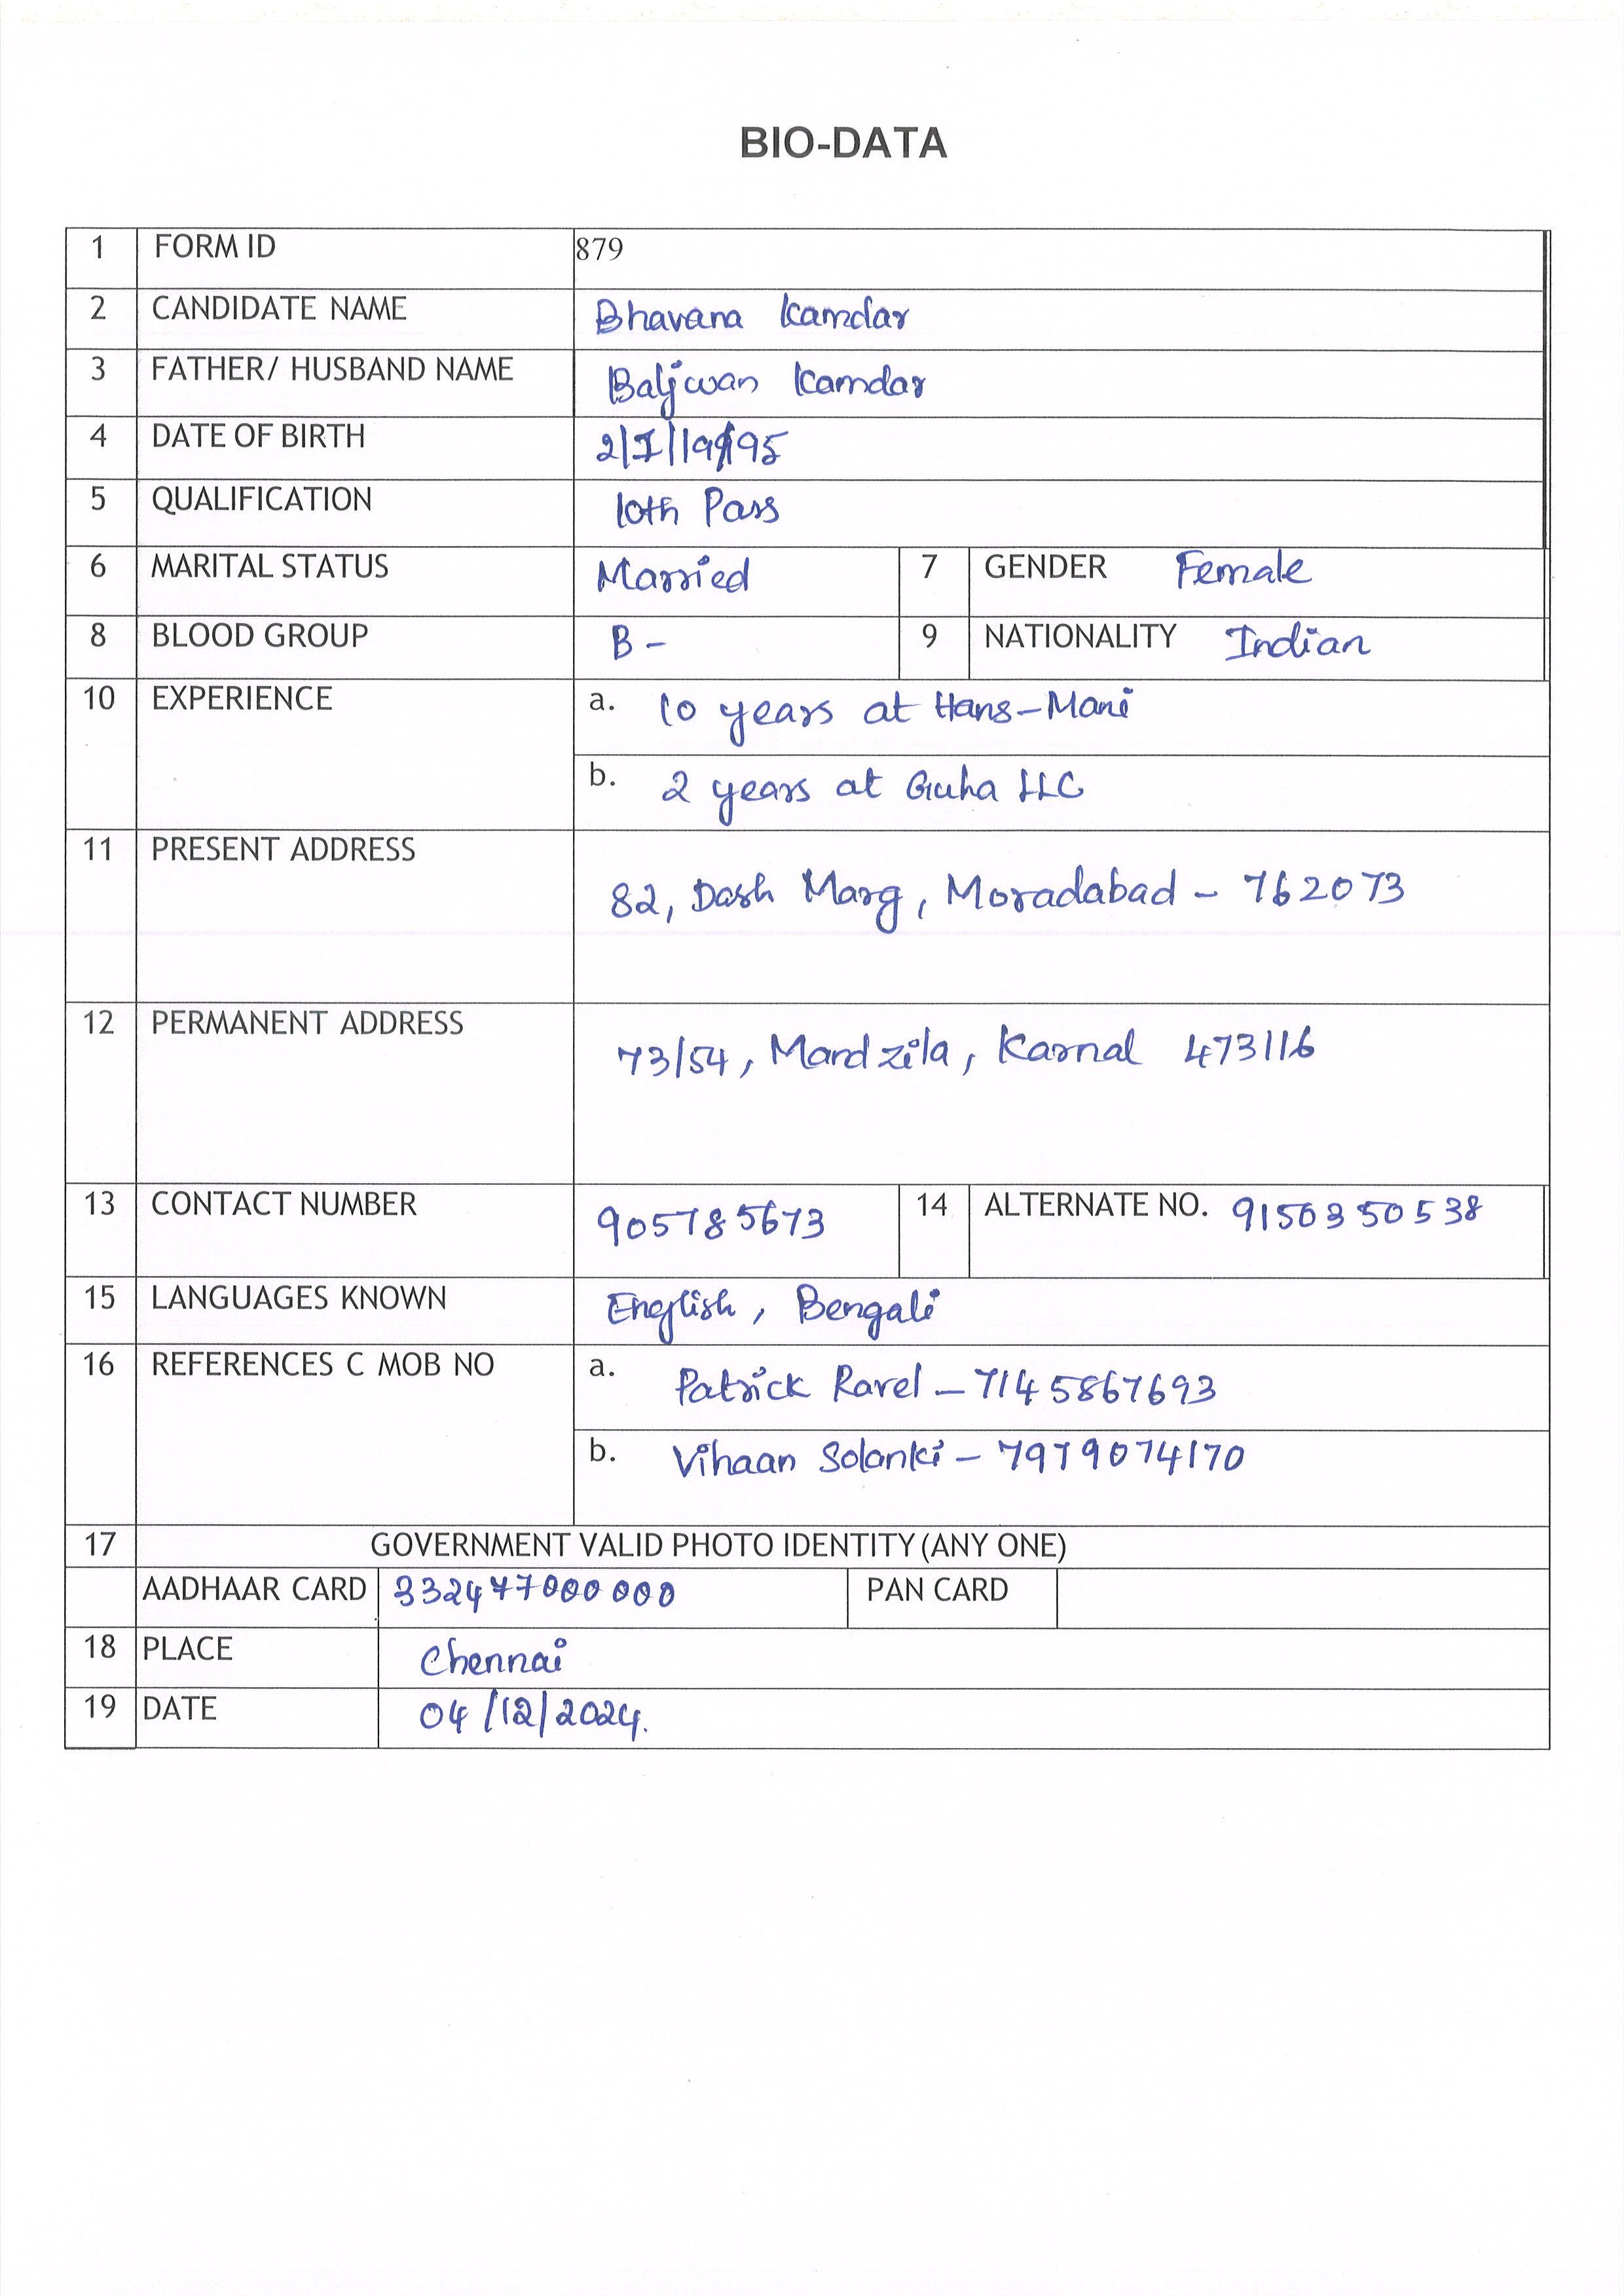 BIO-DATA
1 FORM ID 879
2 CANDIDATE NAME Bhavana Kamdar
3 FATHER/ HUSBAND NAME Baljwan Kamdar
4 DATE OF BIRTH
5 QUALIFICATION 10th Pass
6 MARITAL STATUS Married 7 GENDER Female
8 BLOOD GROUP B - 9 NATIONALITY Indian
10 EXPERIENCE a. 10 years at Hans-Mani
b. 2 years at Guha LLC
11 PRESENT ADDRESS 82, Dash Marg, Moradabad - 762073
12 PERMANENT ADDRESS 73/54, Mand zila, Karnal 473116
13 CONTACT NUMBER 905785673 14 ALTERNATE NO. 9150350538
15 LANGUAGES KNOWN English, Bengali
16 REFERENCES C MOB NO a. Patrick Ravel - 7145867693
b. Vihaan Solanki - 7979074170
17 GOVERNMENT VALID PHOTO IDENTITY (ANY ONE)
AADHAAR CARD 332477000000 PAN CARD
18 PLACE Chennai
19 DATE 04/12/2024.